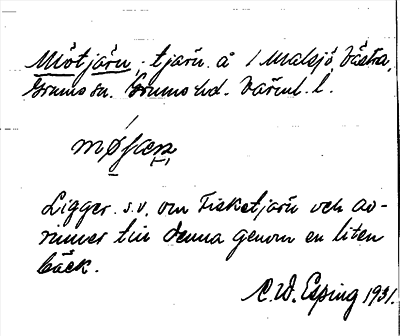 Mötjärn, tjärn å 1 Malsjö Västra,
Grums sn. Grums hd. Värml. l.
Ligger s.v. om Fisketjärn och av-
rinner till denna genom en liten
bäck.
C.W. Esping 1931.